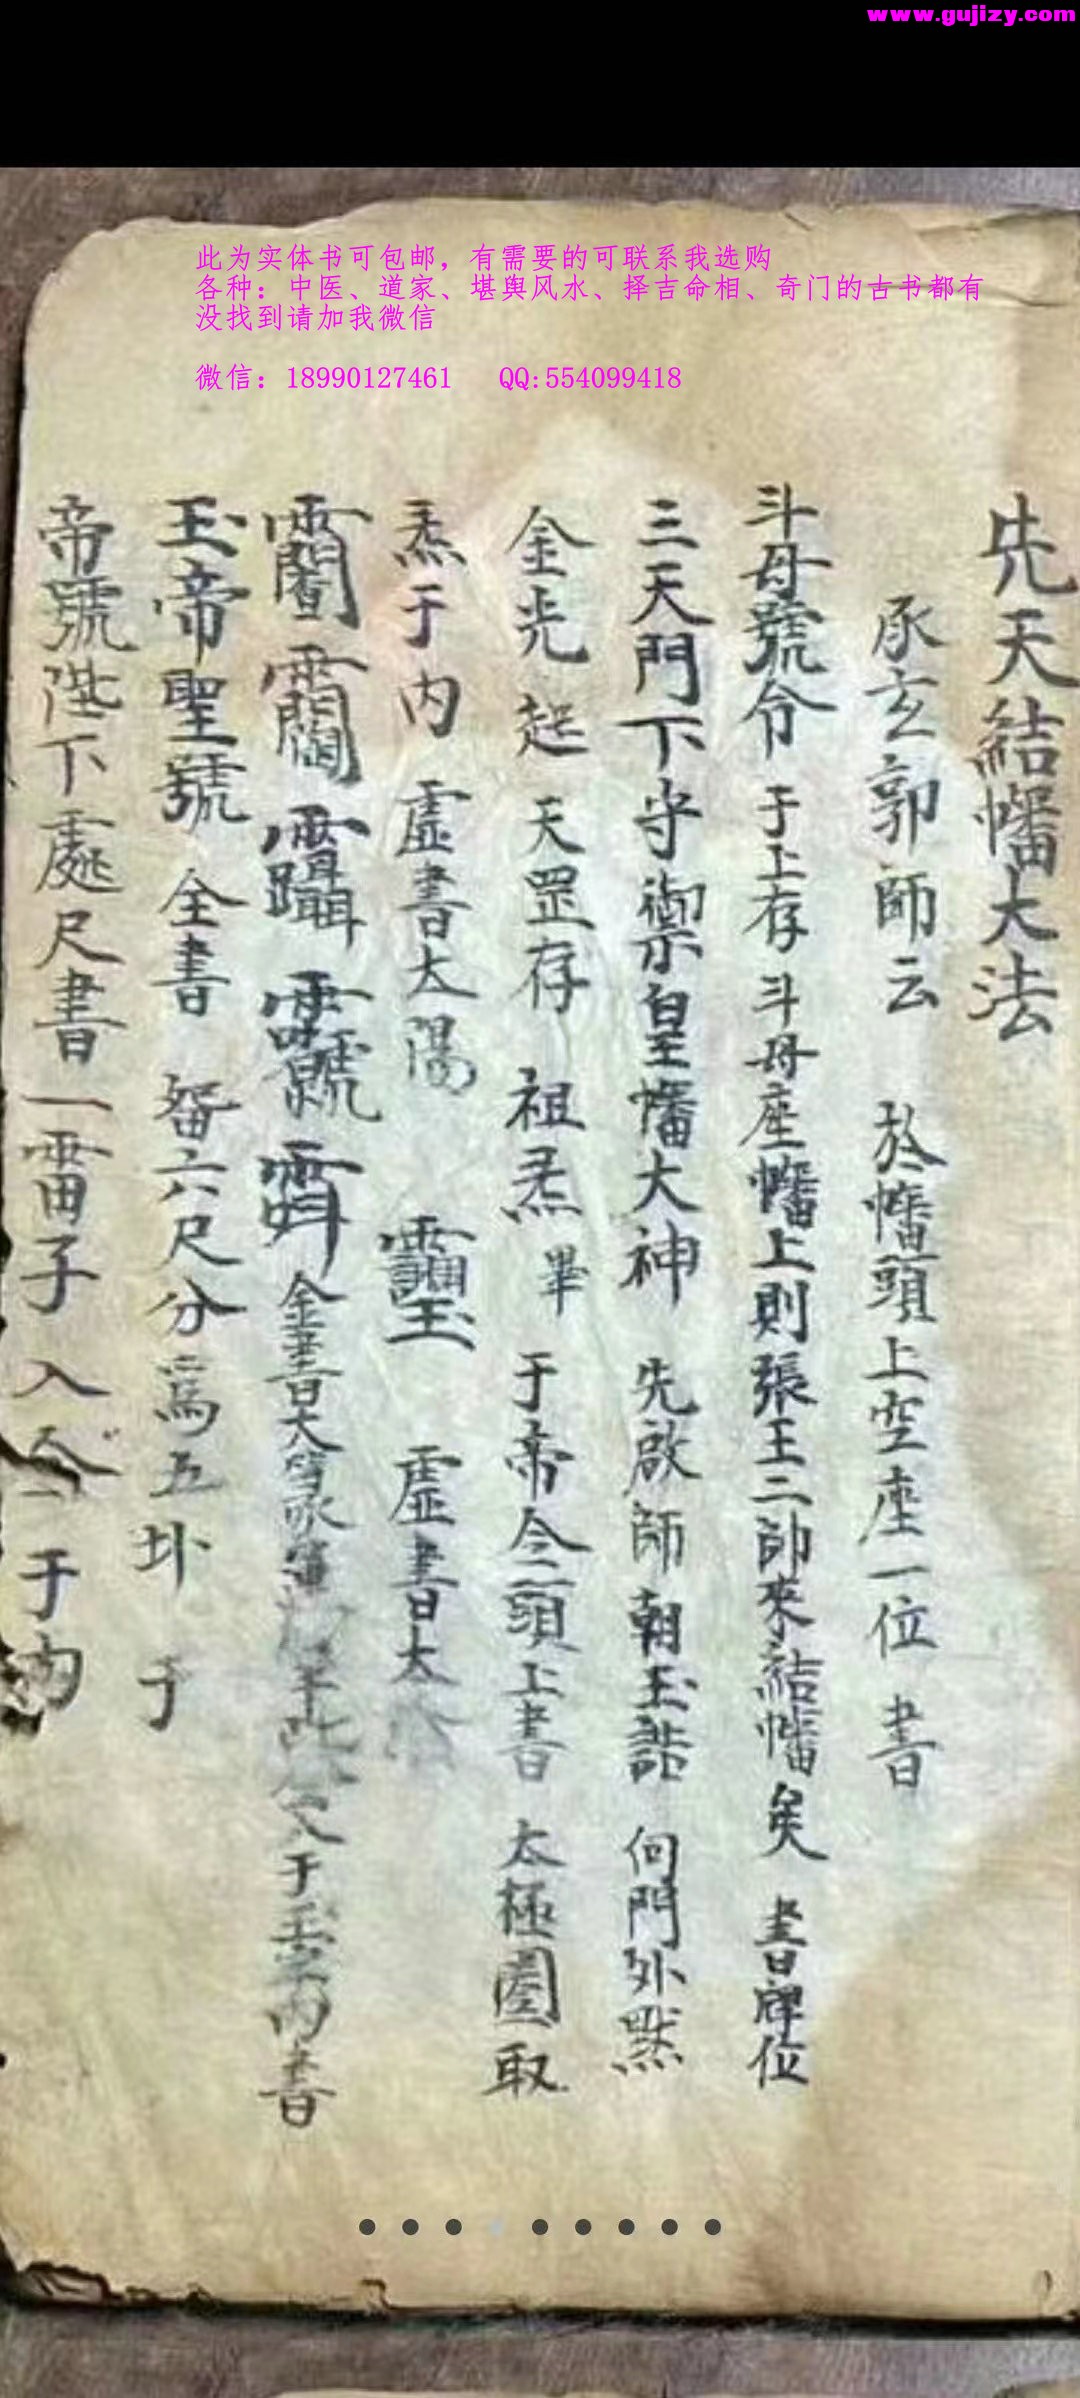 www.gujizy.com
此为实体书可包邮，有需要的可联系我选购
各种：中医、道家、堪舆风水、择吉命相、奇门的古书都有
没找到请加我微信
微信：18990127461 QQ:554099418
先天結幡大法
承玄郭師云 於幡頭上空座一位 書
斗母號令 于上存 斗母座幡上則張王二帥來結幡矣 書牌位
三天門下守禦皇幡大神 先啟師朝玉誥 向門外默
金光起 天罡存 祖炁畢 于帝令頭上書 太極圈取
炁于内 虛書太陽 虛書太
金書
玉帝聖號 全書 六尺分為五 于
帝號陛下處尺書一雷子入 于内